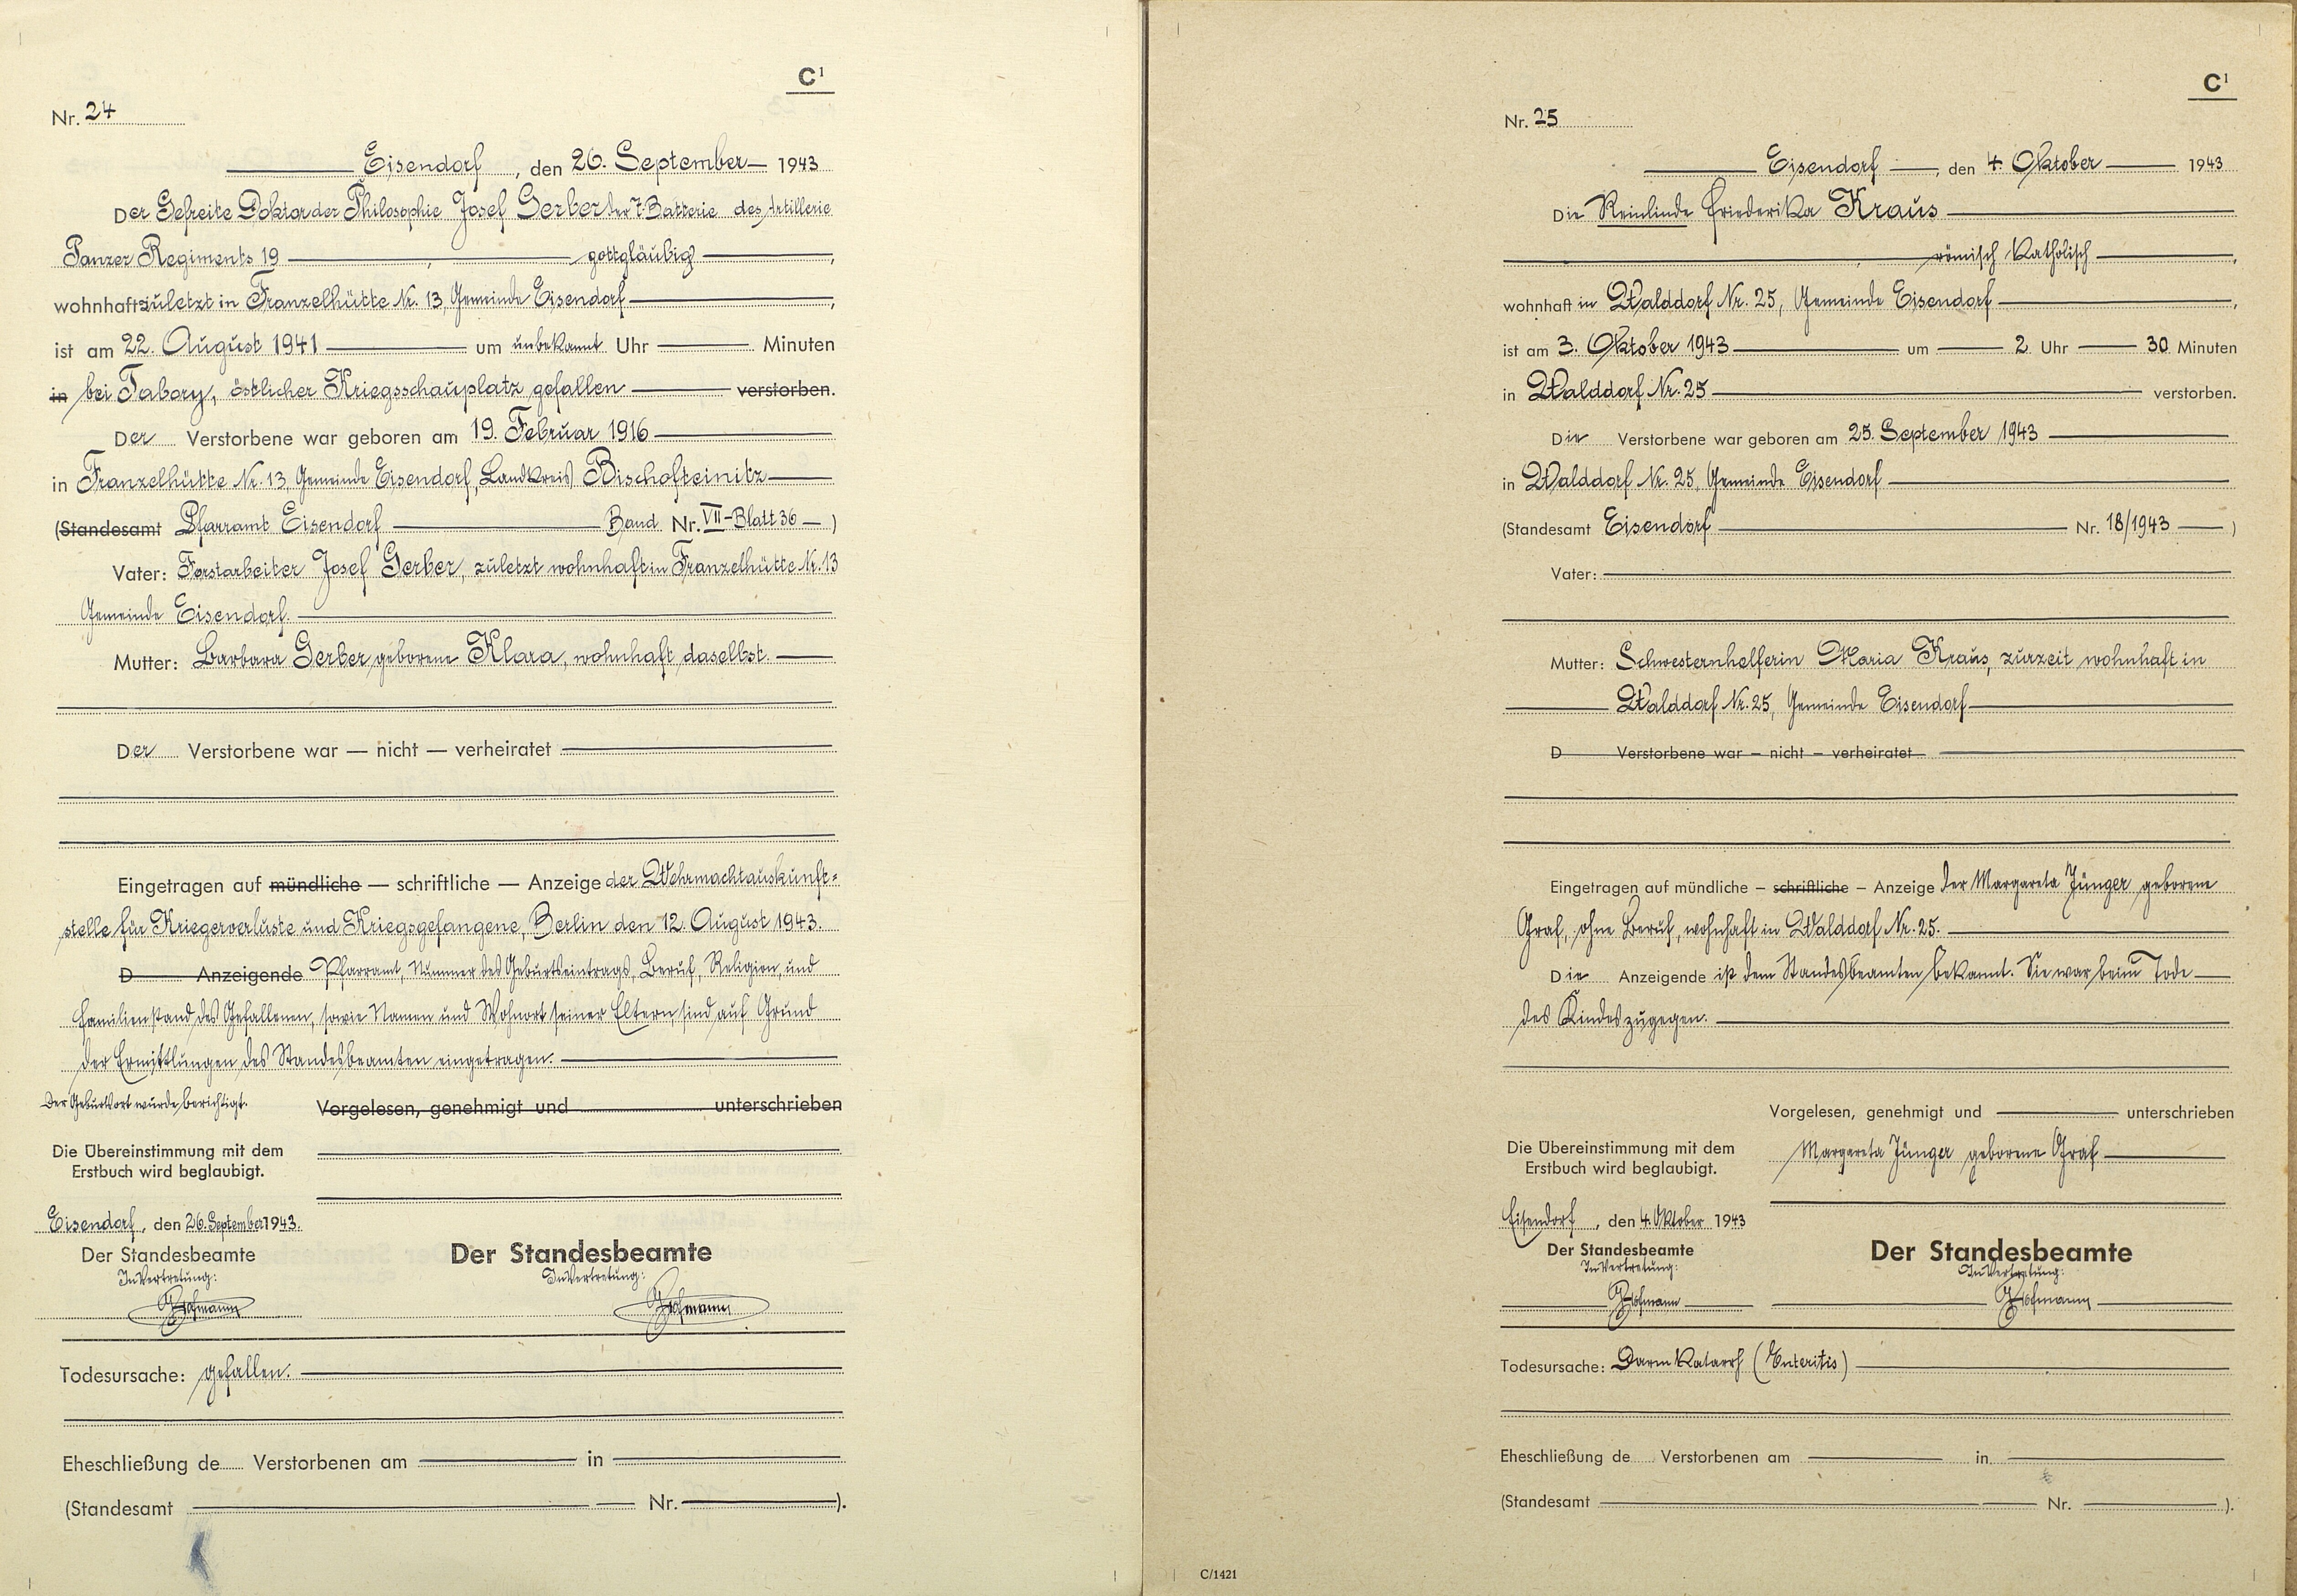 C¹
Nr. 24
Eisendorf, den 26. September 1943
Der Gefreite Doktor der Philosophie Josef Gerber der 7. Batterie des Artillerie
Panzer Regiments 19, gottgläubig,
wohnhaft zuletzt in Franzelhütte Nr. 13, Gemeinde Eisendorf,
ist am 22. August 1941 um unbekannt Uhr Minuten
in bei Tabory, östlicher Kriegsschauplatz gefallen verstorben.
Der Verstorbene war geboren am 19. Februar 1916
in Franzelhütte Nr. 13, Gemeinde Eisendorf, Landkreis Bischofteinitz
(Standesamt Pfarramt Eisendorf Band Nr. VII-Blatt 36)
Vater: Forstarbeiter Josef Gerber, zuletzt wohnhaft in Franzelhütte Nr. 13
Gemeinde Eisendorf.
Mutter: Barbara Gerber geborene Klara, wohnhaft daselbst.
Der Verstorbene war — nicht — verheiratet
Eingetragen auf mündliche — schriftliche — Anzeige der Wehrmachtauskunft=
stelle für Kriegerverluste und Kriegsgefangene, Berlin den 12. August 1943.
D Anzeigende Pfarramt, Nummer des Geburtseintrags, Beruf, Religion, und
Familienstand des Gefallenen, sowie Namen und Wohnort seiner Eltern, sind auf Grund
der Ermittlungen des Standesbeamten eingetragen.
Der Geburtsort wurde berichtigt.
Vorgelesen, genehmigt und unterschrieben
Die Übereinstimmung mit dem
Erstbuch wird beglaubigt.
Eisendorf, den 26. September 1943.
Der Standesbeamte
In Vertretung:
Hofmann
Der Standesbeamte
In Vertretung:
Hofmann
Todesursache: gefallen.
Eheschließung de Verstorbenen am in
(Standesamt Nr. ).
C¹
Nr. 25
Eisendorf, den 4. Oktober 1943
Die Reinlinde Friederika Kraus
, römisch katholisch,
wohnhaft in Walddorf Nr. 25, Gemeinde Eisendorf,
ist am 3. Oktober 1943 um 2 Uhr 30 Minuten
in Walddorf Nr. 25 verstorben.
Die Verstorbene war geboren am 25. September 1943
in Walddorf Nr. 25, Gemeinde Eisendorf
(Standesamt Eisendorf Nr. 18/1943)
Vater:
Mutter: Schwesternhelferin Maria Kraus, zurzeit wohnhaft in
Walddorf Nr. 25, Gemeinde Eisendorf
D Verstorbene war – nicht – verheiratet
Eingetragen auf mündliche – schriftliche – Anzeige der Margareta Jünger geborene
Graf, ohne Beruf, wohnhaft in Walddorf Nr. 25.
Die Anzeigende ist dem Standesbeamten bekannt. Sie war beim Tode
des Kindes zugegen.
Vorgelesen, genehmigt und unterschrieben
Margareta Jünger geborene Graf
Die Übereinstimmung mit dem
Erstbuch wird beglaubigt.
Eisendorf, den 4. Oktober 1943
Der Standesbeamte
In Vertretung:
Hofmann
Der Standesbeamte
In Vertretung:
Hofmann
Todesursache: Darmkatarrh (Enteritis)
Eheschließung de Verstorbenen am in
(Standesamt Nr. ).
C/1421